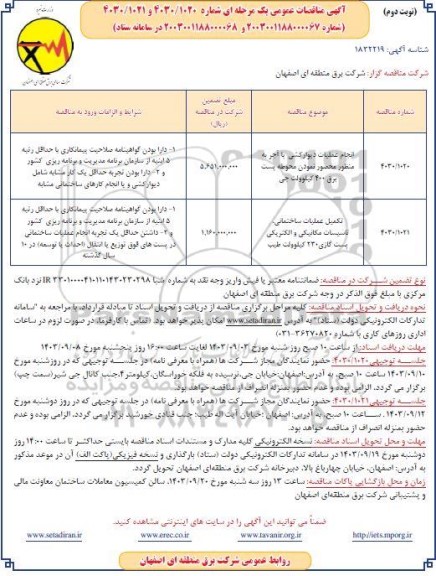 (نوبت دوم)
آگهی مناقصات عمومی یک مرحله ای شماره ۴۰۳۰/۱۰۲۰ و ۴۰۳۰/۱۰۲۱
(شماره ۲۰۰۳۰۰۱۱۸۸۰۰۰۰۶۷ و ۲۰۰۳۰۰۱۱۸۸۰۰۰۰۶۸ در سامانه ستاد)
شناسه آگهی: ۱۸۲۲۲۱۹
شرکت مناقصه گزار: شرکت برق منطقه ای اصفهان
شماره مناقصه
موضوع مناقصه
مبلغ تضمین شرکت در مناقصه (ریال)
شرایط و الزامات ورود به مناقصه
۴۰۳۰/۱۰۲۰
انجام عملیات دیوارکشی با آجر به منظور محصور نمودن محوطه پست برق ۴۰۰ کیلوولت جی
۵,۶۵۱,۰۰۰,۰۰۰
۱- دارا بودن گواهینامه صلاحیت پیمانکاری با حداقل رتبه ۵ ابنیه از سازمان برنامه مدیریت و برنامه ریزی کشور
و ۲- دارا بودن تجربه حداقل یک کار مشابه شامل دیوارکشی و یا انجام کارهای ساختمانی مشابه
۴۰۳۰/۱۰۲۱
تکمیل عملیات ساختمانی، تاسیسات مکانیکی و الکتریکی پست گازی ۲۳۰ کیلوولت طیب
۱,۱۶۰,۰۰۰,۰۰۰
۱- دارا بودن گواهینامه صلاحیت پیمانکاری با حداقل رتبه ۵ ابنیه از سازمان برنامه مدیریت و برنامه ریزی کشور
و ۲- داشتن حداقل یک تجربه انجام عملیات ساختمانی در پست های فوق توزیع یا انتقال (احداث یا توسعه) در ۱۰ سال گذشته
نوع تضمین شرکت در مناقصه: ضمانتنامه معتبر یا فیش واریز وجه نقد به شماره شبا IR ۳۳۰۱۰۰۰۰۴۱۰۱۱۰۱۴۳۰۲۳۰۲۹۸ نزد بانک
مرکزی با مبلغ فوق الذکر در وجه شرکت برق منطقه ای اصفهان
نحوه دریافت و تحویل اسناد مناقصه: کلیه مراحل برگزاری مناقصه از دریافت و تحویل اسناد تا مبادله قرارداد، با مراجعه به "سامانه
تدارکات الکترونیکی دولت (ستاد)" به آدرس www.setadiran.ir امکان پذیر خواهد بود. (تماس با کارفرما، در صورت لزوم در ساعات
اداری روزهای کاری با شماره ۳۶۲۷۰۸۲۰-۰۳۱)
مهلت دریافت اسناد: از ساعت ۱۰ صبح روز شنبه مورخ ۱۴۰۳/۰۹/۰۳ لغایت ساعت ۱۶:۰۰ روز پنجشنبه مورخ ۱۴۰۳/۰۹/۰۸
جلسه توجیهی ۴۰۳۰/۱۰۲۰: حضور نمایندگان مجاز شرکت ها (همراه با معرفی نامه) در جلسه توجیهی که در روز شنبه مورخ
۱۴۰۳/۰۹/۱۰ ساعت ۱۰ صبح، به آدرس: اصفهان: خیابان جی، نرسیده به فلکه خوراسگان، کیلومتر ۴، جنب کانال جی شیر (سمت چپ)
برگزار می گردد، الزامی بوده و عدم حضور بمنزله انصراف از مناقصه خواهد بود.
جلسه توجیهی ۴۰۳۰/۱۰۲۱: حضور نمایندگان مجاز شرکت ها (همراه با معرفی نامه) در جلسه توجیهی که در روز دوشنبه مورخ
۱۴۰۳/۰۹/۱۲، ساعت ۱۰ صبح، به آدرس: اصفهان: خیابان آیت اله طیب: جنب قنادی خورشید برگزار می گردد، الزامی بوده و عدم
حضور بمنزله انصراف از مناقصه خواهد بود.
مهلت و محل تحویل اسناد مناقصه: نسخه الکترونیکی کلیه مدارک و مستندات اسناد مناقصه بایستی حداکثر تا ساعت ۱۴:۰۰ روز
دوشنبه مورخ ۱۴۰۳/۰۹/۱۹ در سامانه تدارکات الکترونیکی دولت (ستاد) بارگذاری و نسخه فیزیکی (پاکت الف) آن در موعد مذکور
به آدرس: اصفهان، خیابان چهارباغ بالا، دبیرخانه شرکت برق منطقه‌ای اصفهان تحویل گردد.
زمان و محل بازگشایی پاکات مناقصه: ساعت ۱۳ روز سه شنبه مورخ ۱۴۰۳/۰۹/۲۰، سالن کمیسیون معاملات ساختمان معاونت مالی
و پشتیبانی شرکت برق منطقه‌ای اصفهان
ضمناً می توانید این آگهی را در سایت های اینترنتی مشاهده کنید.
http://iets.mporg.ir www.erec.co.ir www.setadiran.ir
روابط عمومی شرکت برق منطقه ای اصفهان